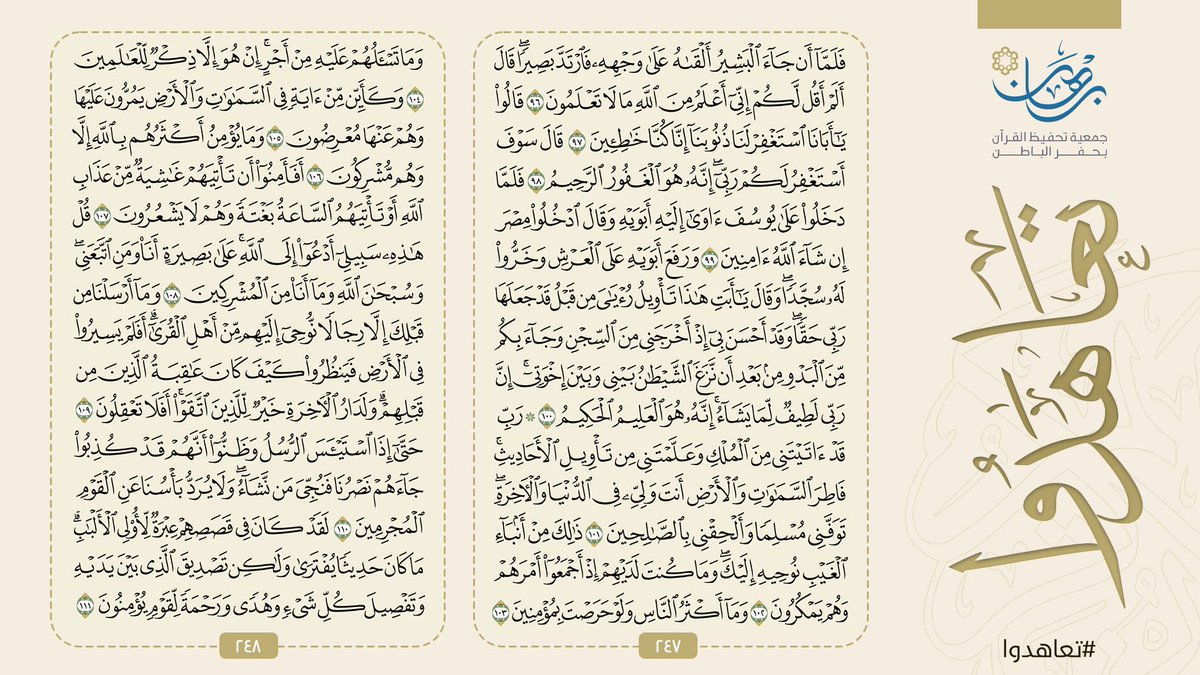 فَلَمَّآ أَن جَآءَ ٱلْبَشِيرُ أَلْقَىٰهُ عَلَىٰ وَجْهِهِۦ فَٱرْتَدَّ بَصِيرًۭا ۖ قَالَ
أَلَمْ أَقُل لَّكُمْ إِنِّىٓ أَعْلَمُ مِنَ ٱللَّهِ مَا لَا تَعْلَمُونَ ٩٦ قَالُوا۟
يَـٰٓأَبَانَا ٱسْتَغْفِرْ لَنَا ذُنُوبَنَآ إِنَّا كُنَّا خَـٰطِـِٔينَ ٩٧ قَالَ سَوْفَ
أَسْتَغْفِرُ لَكُمْ رَبِّىٓ ۖ إِنَّهُۥ هُوَ ٱلْغَفُورُ ٱلرَّحِيمُ ٩٨ فَلَمَّا
دَخَلُوا۟ عَلَىٰ يُوسُفَ ءَاوَىٰٓ إِلَيْهِ أَبَوَيْهِ وَقَالَ ٱدْخُلُوا۟ مِصْرَ
إِن شَآءَ ٱللَّهُ ءَامِنِينَ ٩٩ وَرَفَعَ أَبَوَيْهِ عَلَى ٱلْعَرْشِ وَخَرُّوا۟
لَهُۥ سُجَّدًۭا ۖ وَقَالَ يَـٰٓأَبَتِ هَـٰذَا تَأْوِيلُ رُءْيَـٰىَ مِن قَبْلُ قَدْ جَعَلَهَا
رَبِّى حَقًّۭا ۖ وَقَدْ أَحْسَنَ بِىٓ إِذْ أَخْرَجَنِى مِنَ ٱلسِّجْنِ وَجَآءَ بِكُم
مِّنَ ٱلْبَدْوِ مِنۢ بَعْدِ أَن نَّزَغَ ٱلشَّيْطَـٰنُ بَيْنِى وَبَيْنَ إِخْوَتِىٓ ۚ إِنَّ
رَبِّى لَطِيفٌۭ لِّمَا يَشَآءُ ۚ إِنَّهُۥ هُوَ ٱلْعَلِيمُ ٱلْحَكِيمُ ١٠٠ ۞ رَبِّ
قَدْ ءَاتَيْتَنِى مِنَ ٱلْمُلْكِ وَعَلَّمْتَنِى مِن تَأْوِيلِ ٱلْأَحَادِيثِ ۚ
فَاطِرَ ٱلسَّمَـٰوَٰتِ وَٱلْأَرْضِ أَنتَ وَلِىِّۦ فِى ٱلدُّنْيَا وَٱلْـَٔاخِرَةِ ۖ
تَوَفَّنِى مُسْلِمًۭا وَأَلْحِقْنِى بِٱلصَّـٰلِحِينَ ١٠١ ذَٰلِكَ مِنْ أَنۢبَآءِ
ٱلْغَيْبِ نُوحِيهِ إِلَيْكَ ۖ وَمَا كُنتَ لَدَيْهِمْ إِذْ أَجْمَعُوٓا۟ أَمْرَهُمْ
وَهُمْ يَمْكُرُونَ ١٠٢ وَمَآ أَكْثَرُ ٱلنَّاسِ وَلَوْ حَرَصْتَ بِمُؤْمِنِينَ ١٠٣
٢٤٧
وَمَا تَسْـَٔلُهُمْ عَلَيْهِ مِنْ أَجْرٍ ۚ إِنْ هُوَ إِلَّا ذِكْرٌۭ لِّلْعَـٰلَمِينَ
١٠٤ وَكَأَيِّن مِّنْ ءَايَةٍۢ فِى ٱلسَّمَـٰوَٰتِ وَٱلْأَرْضِ يَمُرُّونَ عَلَيْهَا
وَهُمْ عَنْهَا مُعْرِضُونَ ١٠٥ وَمَا يُؤْمِنُ أَكْثَرُهُم بِٱللَّهِ إِلَّا
وَهُم مُّشْرِكُونَ ١٠٦ أَفَأَمِنُوٓا۟ أَن تَأْتِيَهُمْ غَـٰشِيَةٌۭ مِّنْ عَذَابِ
ٱللَّهِ أَوْ تَأْتِيَهُمُ ٱلسَّاعَةُ بَغْتَةًۭ وَهُمْ لَا يَشْعُرُونَ ١٠٧ قُلْ
هَـٰذِهِۦ سَبِيلِىٓ أَدْعُوٓا۟ إِلَى ٱللَّهِ ۚ عَلَىٰ بَصِيرَةٍ أَنَا۠ وَمَنِ ٱتَّبَعَنِى ۖ
وَسُبْحَـٰنَ ٱللَّهِ وَمَآ أَنَا۠ مِنَ ٱلْمُشْرِكِينَ ١٠٨ وَمَآ أَرْسَلْنَا مِن
قَبْلِكَ إِلَّا رِجَالًۭا نُّوحِىٓ إِلَيْهِم مِّنْ أَهْلِ ٱلْقُرَىٰٓ ۗ أَفَلَمْ يَسِيرُوا۟
فِى ٱلْأَرْضِ فَيَنظُرُوا۟ كَيْفَ كَانَ عَـٰقِبَةُ ٱلَّذِينَ مِن
قَبْلِهِمْ ۗ وَلَدَارُ ٱلْـَٔاخِرَةِ خَيْرٌۭ لِّلَّذِينَ ٱتَّقَوْا۟ ۗ أَفَلَا تَعْقِلُونَ ١٠٩
حَتَّىٰٓ إِذَا ٱسْتَيْـَٔسَ ٱلرُّسُلُ وَظَنُّوٓا۟ أَنَّهُمْ قَدْ كُذِبُوا۟
جَآءَهُمْ نَصْرُنَا فَنُجِّىَ مَن نَّشَآءُ ۖ وَلَا يُرَدُّ بَأْسُنَا عَنِ ٱلْقَوْمِ
ٱلْمُجْرِمِينَ ١١٠ لَقَدْ كَانَ فِى قَصَصِهِمْ عِبْرَةٌۭ لِّأُو۟لِى ٱلْأَلْبَـٰبِ ۗ
مَا كَانَ حَدِيثًۭا يُفْتَرَىٰ وَلَـٰكِن تَصْدِيقَ ٱلَّذِى بَيْنَ يَدَيْهِ
وَتَفْصِيلَ كُلِّ شَىْءٍۢ وَهُدًۭى وَرَحْمَةًۭ لِّقَوْمٍۢ يُؤْمِنُونَ ١١١
٢٤٨
برهان
جمعية تحفيظ القرآن
بحفر الباطن
تعاهدوا
#تعاهدوا